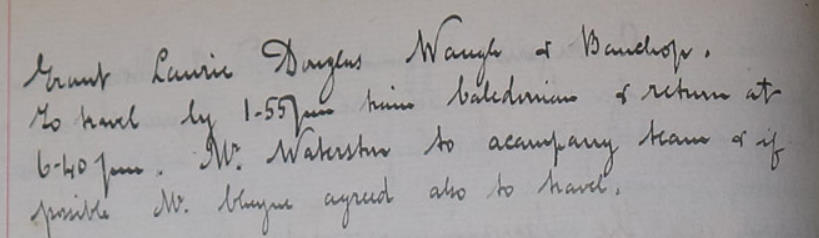 Grant Laurie Douglas Waugh & Bauchop.
To travel by 1-55 pm train Caledonian & return at
6-40 pm. Mr. Waterston to acompany team & if
possible Mr. agreed also to travel.